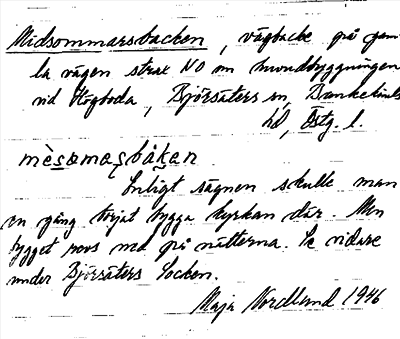 Midsommarsbacken, vägbacke på gam
la vägen strax NO om huvudbyggningen
vid Högboda, Björsäters sn, Bankekinds
hd, Östg. l.
mèsamaʂbåkan
Enligt sägnen skulle man
en gång börjat bygga kyrkan där. Men
bygget revs ned på nätterna. Se vidare
under Björsäters Socken.
Maja Nordlund 1946